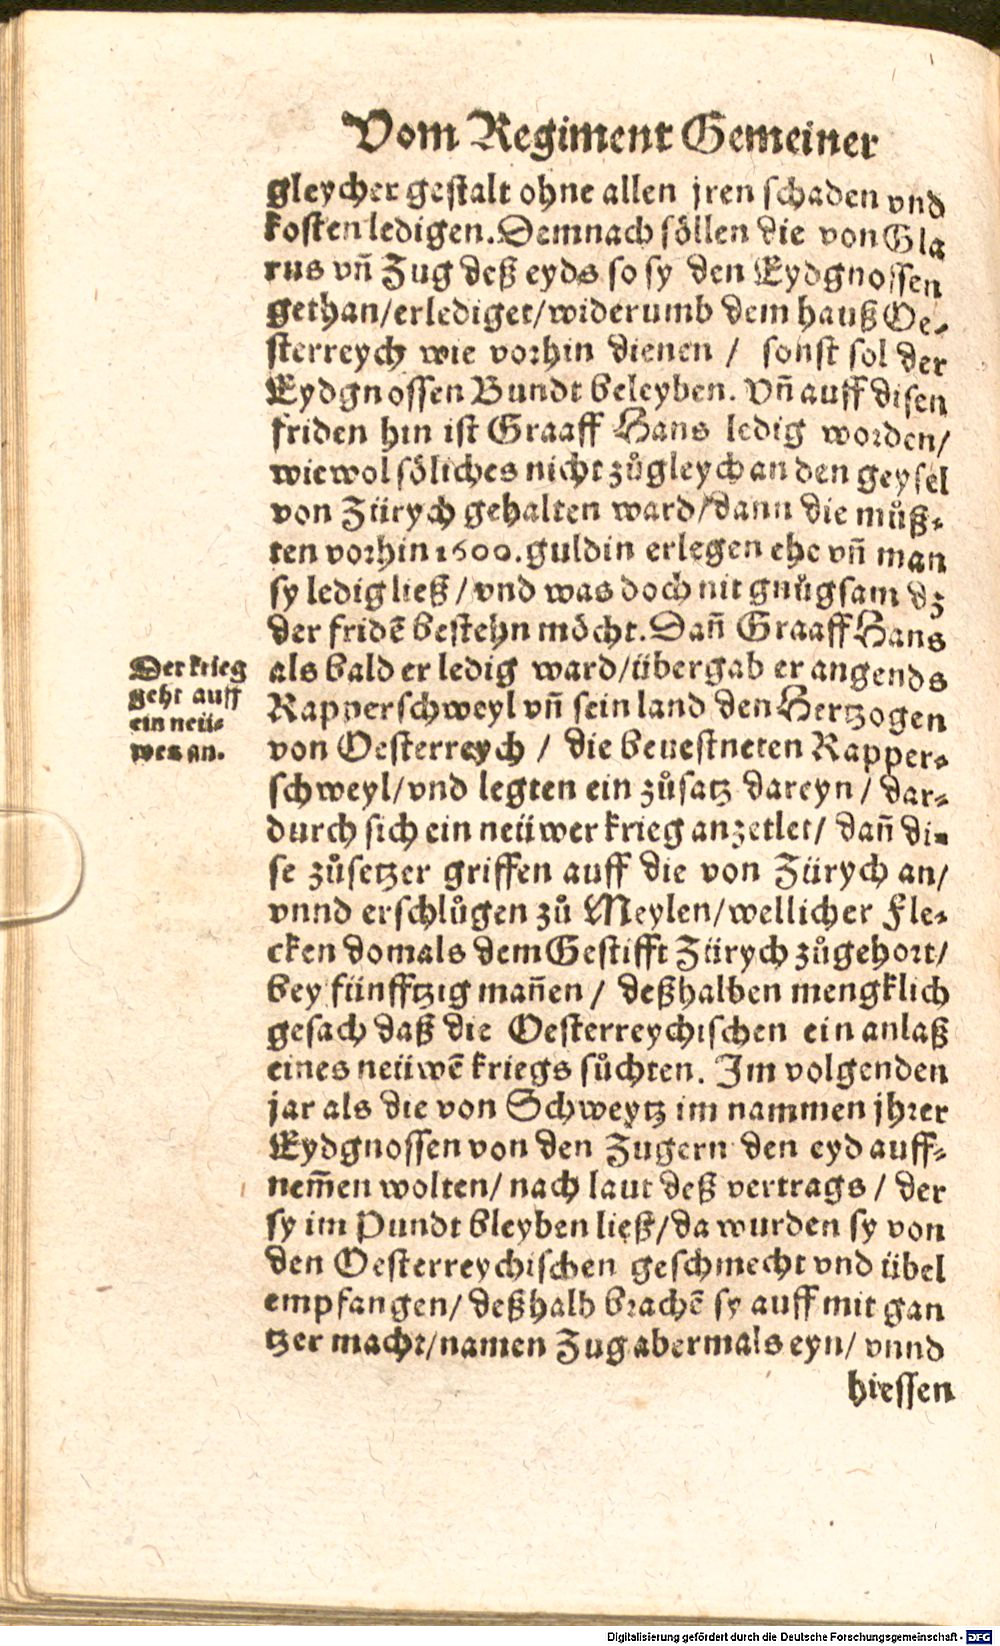 Vom Regiment Gemeiner
gleycher gestalt ohne allen jren schaden vnd
kosten ledigen. Demnach söllen die von Gla
rus vñ Zug deß eyds so sy den Eydgnossen
gethan/erlediget/widerumb dem hauß Oe-
sterreych wie vorhin dienen / sonst sol der
Eydgnossen Bundt beleyben. Vñ auff disen
friden hin ist Graaff Hans ledig worden/
wiewol söliches nicht zůgleych an den geysel
von Zürych gehalten ward/dann die můß-
ten vorhin 1600. guldin erlegen ehe vñ man
sy ledig ließ / vnd was doch nit gnůgsam dz
der fridẽ bestehn möcht. Dañ Graaff Hans
als bald er ledig ward/übergab er angends
Rapperschweyl vñ sein land den Hertzogen
von Oesterreych / die beuestneten Rapper-
schweyl/vnd legten ein zůsatz dareyn / dar-
durch sich ein neüwer krieg anzetlet/ dañ di-
se zůsetzer griffen auff die von Zürych an/
vnnd erschlůgen zů Meylen/wellicher Fle-
cken domals dem Gestifft Zürych zůgehort/
bey fünfftzig mañen / deßhalben mengklich
gesach daß die Oesterreychischen ein anlaß
eines neüwẽ kriegs sůchten. Im volgenden
jar als die von Schweytz im nammen jhrer
Eydgnossen von den Zugern den eyd auff-
nem̃en wolten/ nach laut deß vertrags / der
sy im Pundt bleyben ließ/da wurden sy von
den Oesterreychischen geschmecht vnd übel
empfangen/ deßhalb brachẽ sy auff mit gan
tzer macht/namen Zug abermals eyn/ vnnd
hiessen
Der krieg
geht auff
ein neü-
wes an.
Digitalisierung gefördert durch die Deutsche Forschungsgemeinschaft - DFG